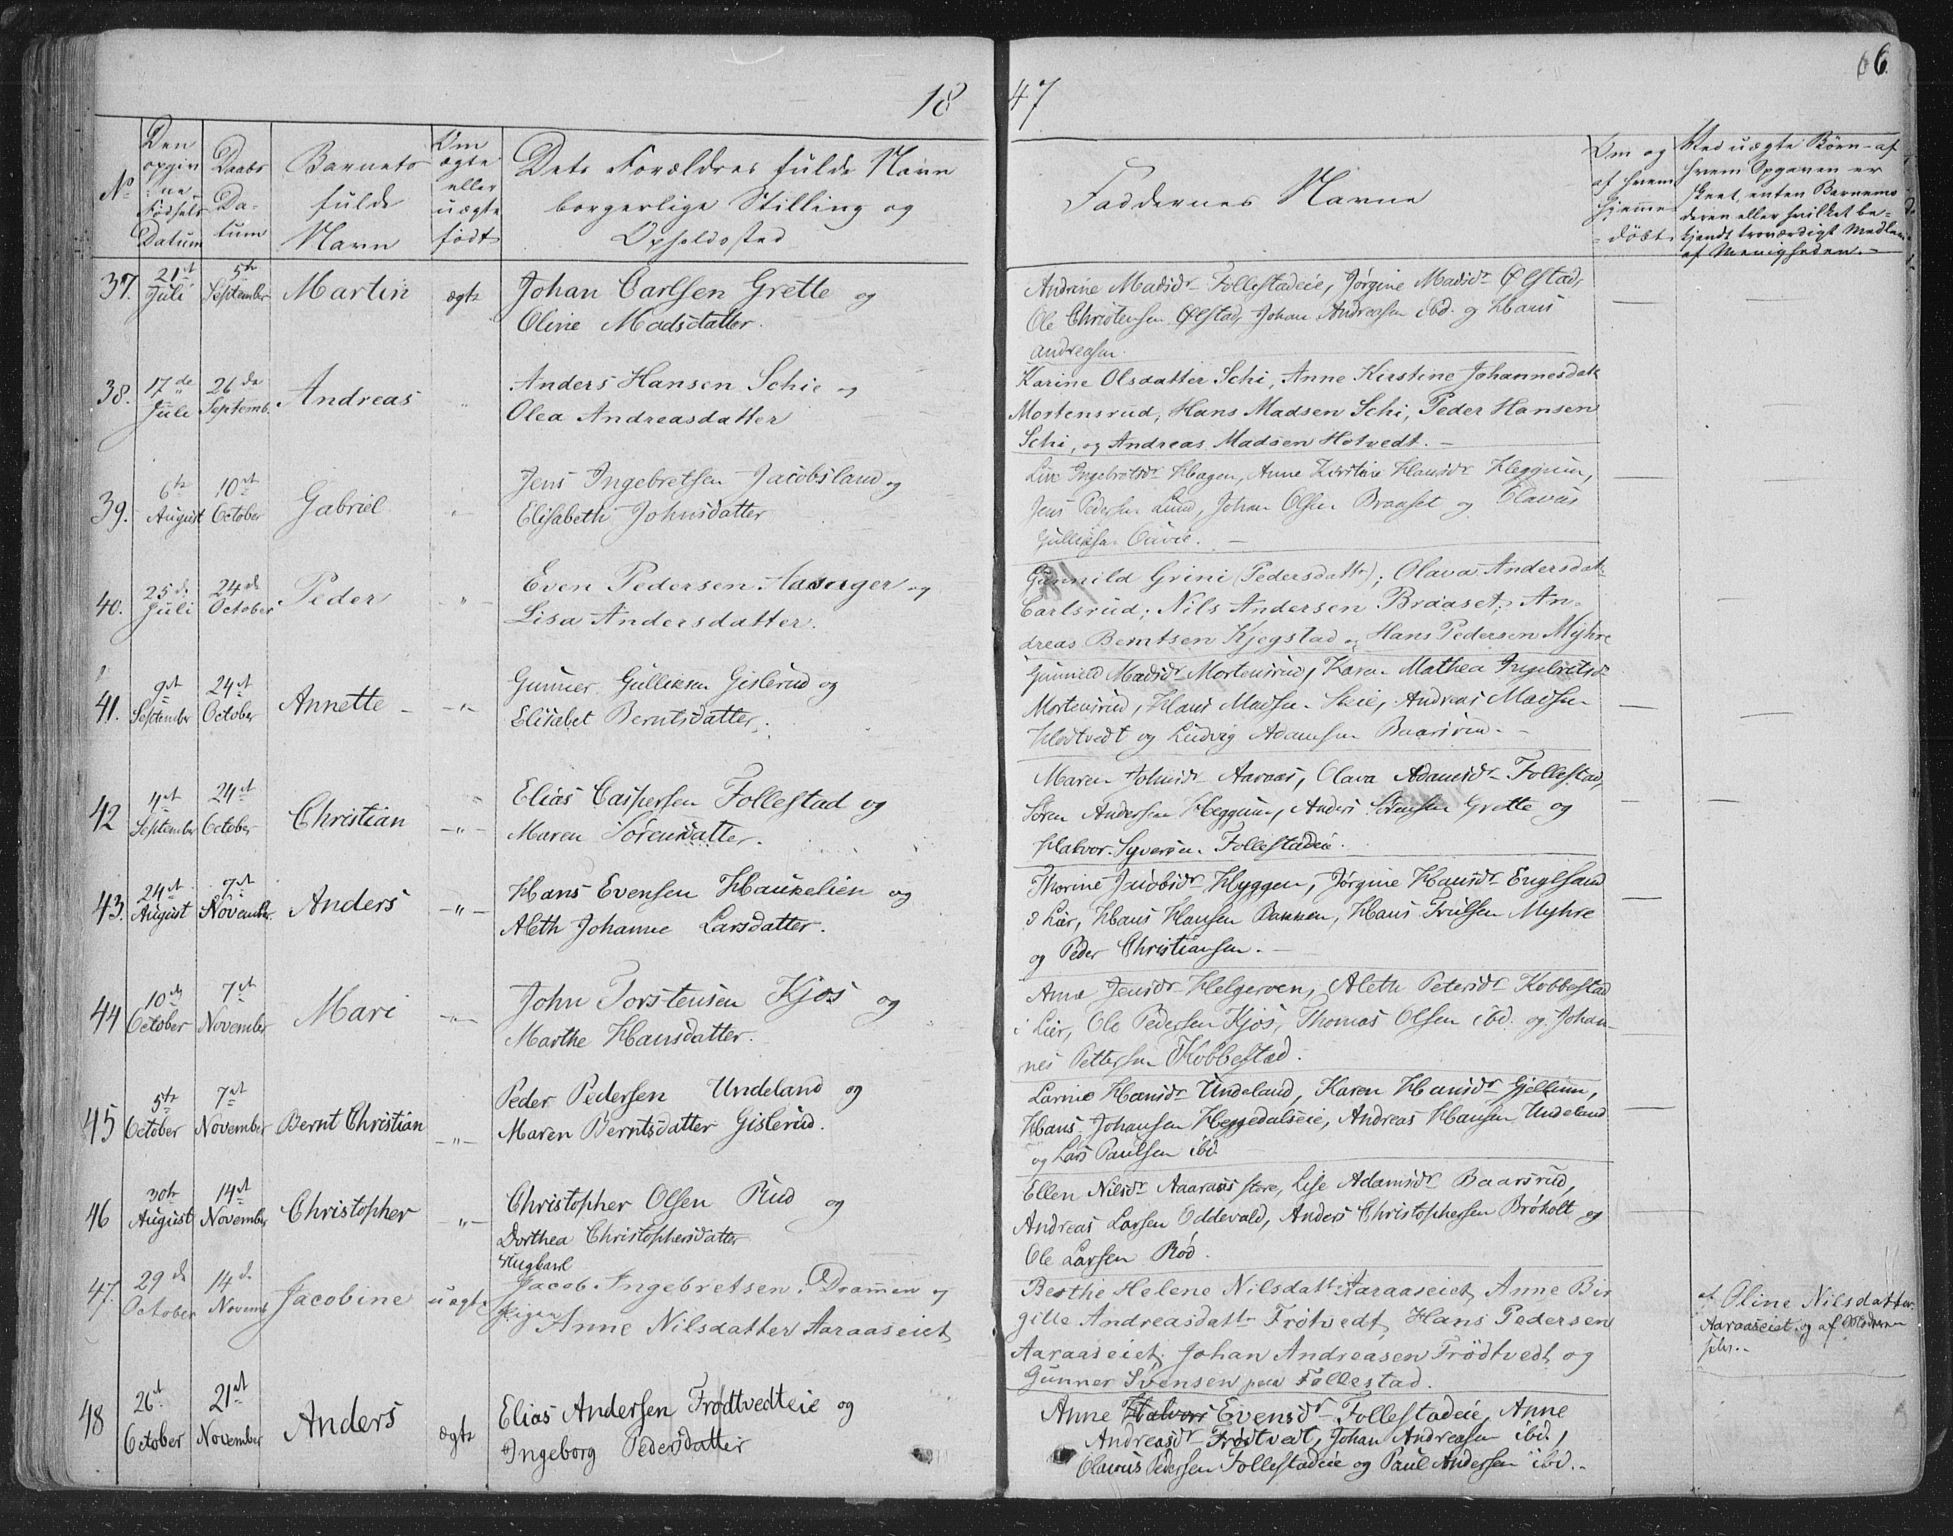 18
47
66
No
Den opgivne Fødsels Datum
Daabs Datum
Barnets fulde Navn
Om ægte eller uægte født
Dets Forældres fulde Navn borgerlige Stilling og Opholdssted
Faddernes Navne
Om og af hvem hjemmedøbt
Ved uægte Børn af hvem Opgaven er skeet, enten Barnemoderen eller hvilket bekjendt troværdigt Medlem af Menigheden.
37. 21st Juli 5te September Martin ægte
Johan Carlsen Grette og
Oline Madsdatter.
Andrine Madsdr Follestadeie, Jørgine Madsdr Ølstad,
Ole Christensen Ølstad, Johan Andreassen ibd. og Hans
Andreasen.
38. 17de Juli 26de Septemb. Andreas "
Anders Hansen Schie og
Olea Andreasdatter
Karine Olsdatter Schi, Anne Kirstine Johannesdatt
Mortensrud, Hans Madsen Schi, Peder Hansen
Schi, og Andreas Madsen Hotvedt. –
39. 6te August 10de October Gabriel "
Jens Ingebretsen Jacobsland og
Elisabeth Johnsdatter
Live Ingebretsdr Hagen, Anne Kirstine Hansdr Heggum,
Jens Pedersen Lund, Johan Olsen Braaset og Olavus
Gulliksen
40. 25de Juli 24de October Peder – " –
Even Pedersen og
Lisa Andersdatter.
Gunnild Grini (Pedersdattr); Olava Andersdatt
Carlsrud; Nils Andersen Braaset; An-
dreas Berntsen Kjegstad og Hans Pedersen Myhre
41. 9de September 24de October Annette – – " –
Gunner Gulliksen Gislerud og
Elisabet Berntsdatter.
Gunnild Madsdr Mortensrud, Karen Mathea Ingebretsd
Mortensrud, Hans Madsen Skie, Andreas Madsen
Hotvedt og Ludvig Adamsen Baarsrud. –
42 4de September 24de October Christian – " –
Elias Caspersen Follestad og
Maren Sörensdatter.
Maren Johnsdr Aaraas, Olava Adamsdr Follestad,
Sören Andersen Heggum, Anders Sörensen Grette og
Halvor Syversen Follestadeie.
43. 24de August 7de November Anders – " –
Hans Evensen Haukelien og
Aleth Johanne Larsdatter.
Thorine Jacobsdr Hyggen, Jørgine Hansdr Englsand
i Lier, Hans Hansen Bakken, Hans Trulsen Myhre
og Peder Christiansen. –
44 10de October 7de November Mari – " –
John Torstensen Kjos og
Marthe Hansdatter.
Anne Jensdr Helgeroen, Aleth Petersdr Kobbestad
i Lier, Ole Pedersen Kjos, Thomas Olsen ibd. og Johan-
nes Pettersen Kobbestad.
45 5te October 7de November Bernt Christian – " –
Peder Pedersen Undeland og
Maren Berntsdatter Gislerud.
Larine Hansdr Undeland, Karen Hansdr Gjellum,
Hans Johansen Heggedalseie, Andreas Hansen Undeland
og Lars Paulsen ibd
46 30te August 14de November Christopher – " –
Christopher Olsen Rud og
Dorthea Christophersdatter
Ellen Nilsdr Aaraas store, Lise Adamsdr Baarsrud,
Andreas Larsen Oddevald, Anders Christophersen Bröholt og
Ole Larsen Röd.
47. 29de October 14de Novemb Jacobine uægte
Ungkarl
Jacob Ingebretsen, Drammen og
Pigen Anne Nilsdatter Aaraaseiet
Berthe Helene Nilsdattr Aaraaseiet, Anne Bir
gitte Andreasdattr Frötvedt, Hans Pedersen
Aaraaseiet, Johan Andreasen Frödtvedt og
Gunner Svensen Follestad.
af Oline Nilsdatter
Aaraaseiet og af Moderen
selv. –
48 26de October 21de November Anders ægte
Elias Andersen Frødtvedteie og
Ingeborg Pedersdatter
Anne Halvors Evensdr Follestadeie, Anne
Andreasdr Frödtvedt, Johan Andreasen ibd,
Olavus Pedersen Follestadeie og Paul Andersen ibd. –